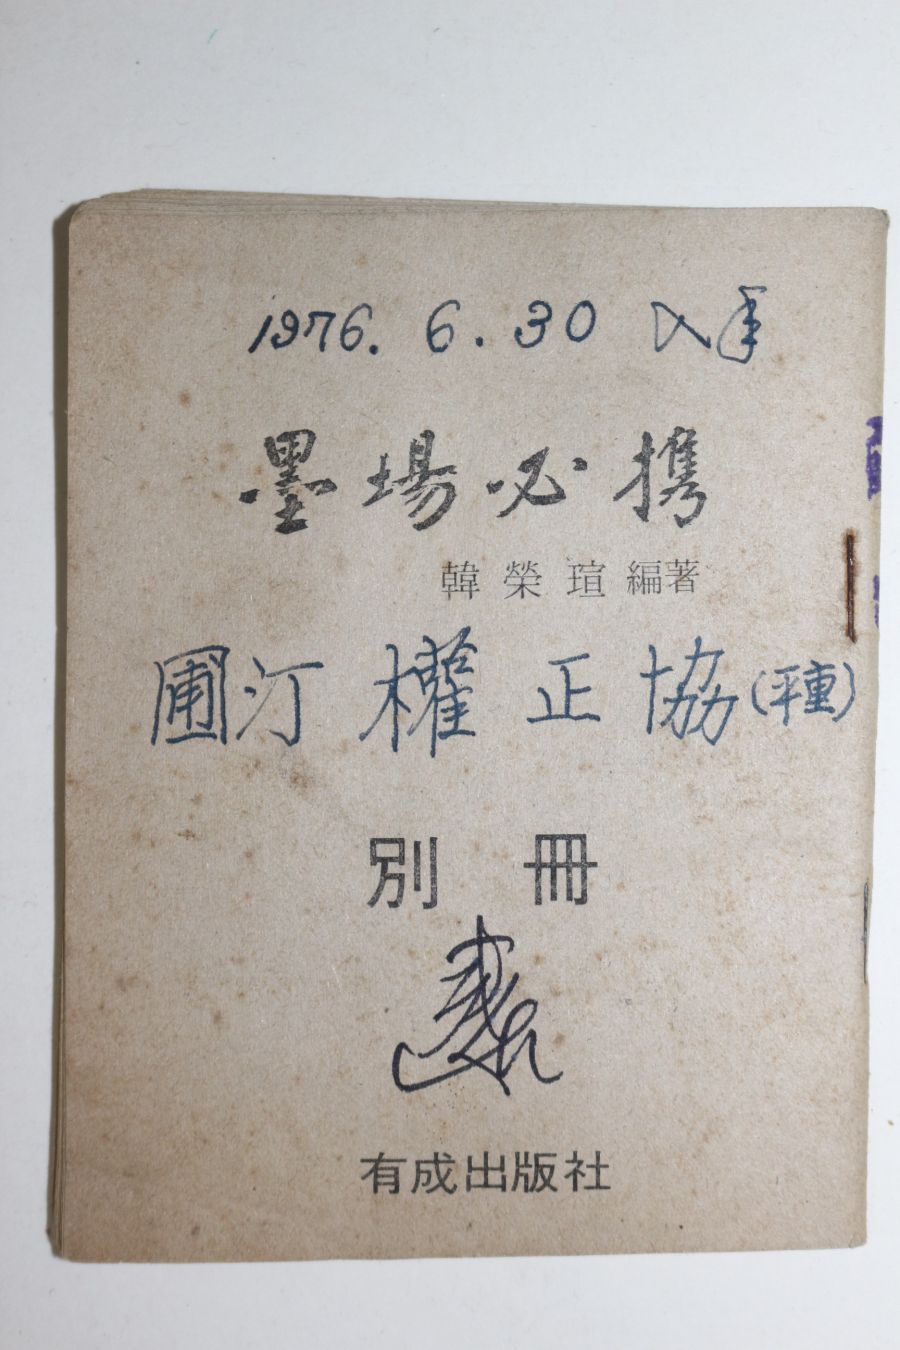 1976. 6. 30 入手
墨場必携
韓榮瑄編著
圃汀 權正協(種)
別冊
有成出版社